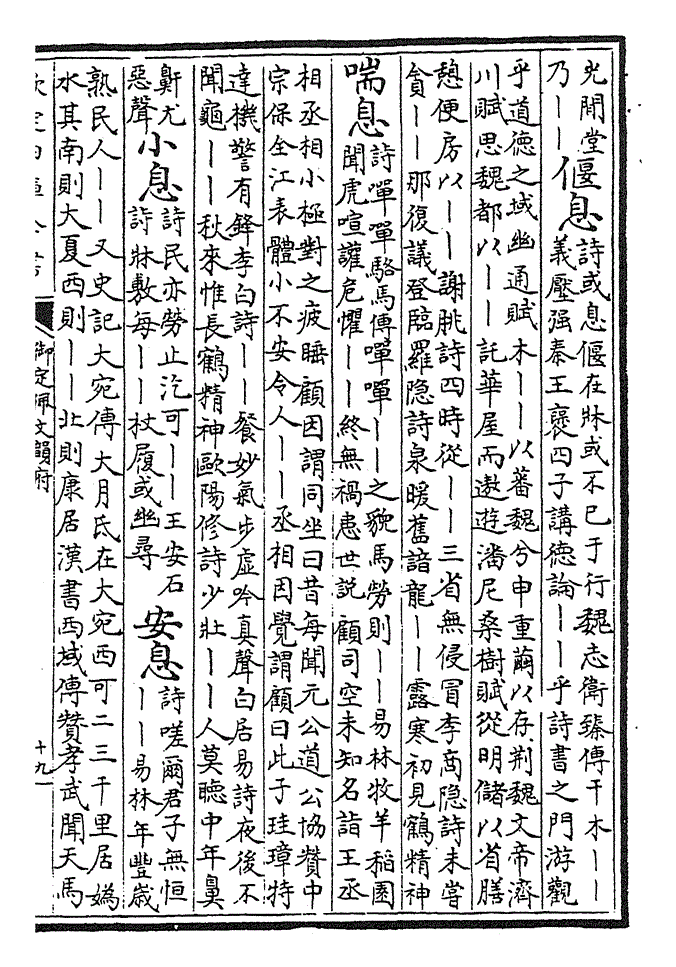 光閒堂
乃——
偃息
詩或息偃在牀或不已于行魏志衛臻傳干木——
義壓强秦王褒四子講德論——乎詩書之門游觀
乎道德之域幽通賦木——以蕃魏兮申重繭以存荆魏文帝濟
川賦思魏都以——託華屋而遨遊潘尼桑樹賦從明儲以省膳
憩便房以——謝脁詩四時從——三省無侵冒李商隱詩未嘗
貪——那復議登臨羅隱詩泉暖舊諳龍——露寒初見鶴精神
喘息
詩嘽嘽駱馬傳嘽嘽——之貌馬勞則——易林牧羊稻園
聞虎喧讙危懼——終無禍患世説顧司空未知名詣王丞
相丞相小極對之疲睡顧因謂同坐曰昔每聞元公道公協贊中
宗保全江表體小不安令人——丞相因覺謂顧曰此子珪璋特
達機警有鋒李白詩——餐妙氣步虛吟真聲白居易詩夜後不
聞龜——秋來惟長鶴精神歐陽修詩少壯——人莫聽中年鼻
鼾尤
惡聲
小息
詩民亦勞止汔可——王安石
詩牀敷每——杖屨或幽尋
安息
詩嗟爾君子無恒
——易林年豐歲
熟民人——又史記大宛傳大月氏在大宛西可二三千里居嬀
水其南則大夏西則——北則康居漢書西域傳贊孝武聞天馬
欽定四庫全書
御定佩文韻府
十九